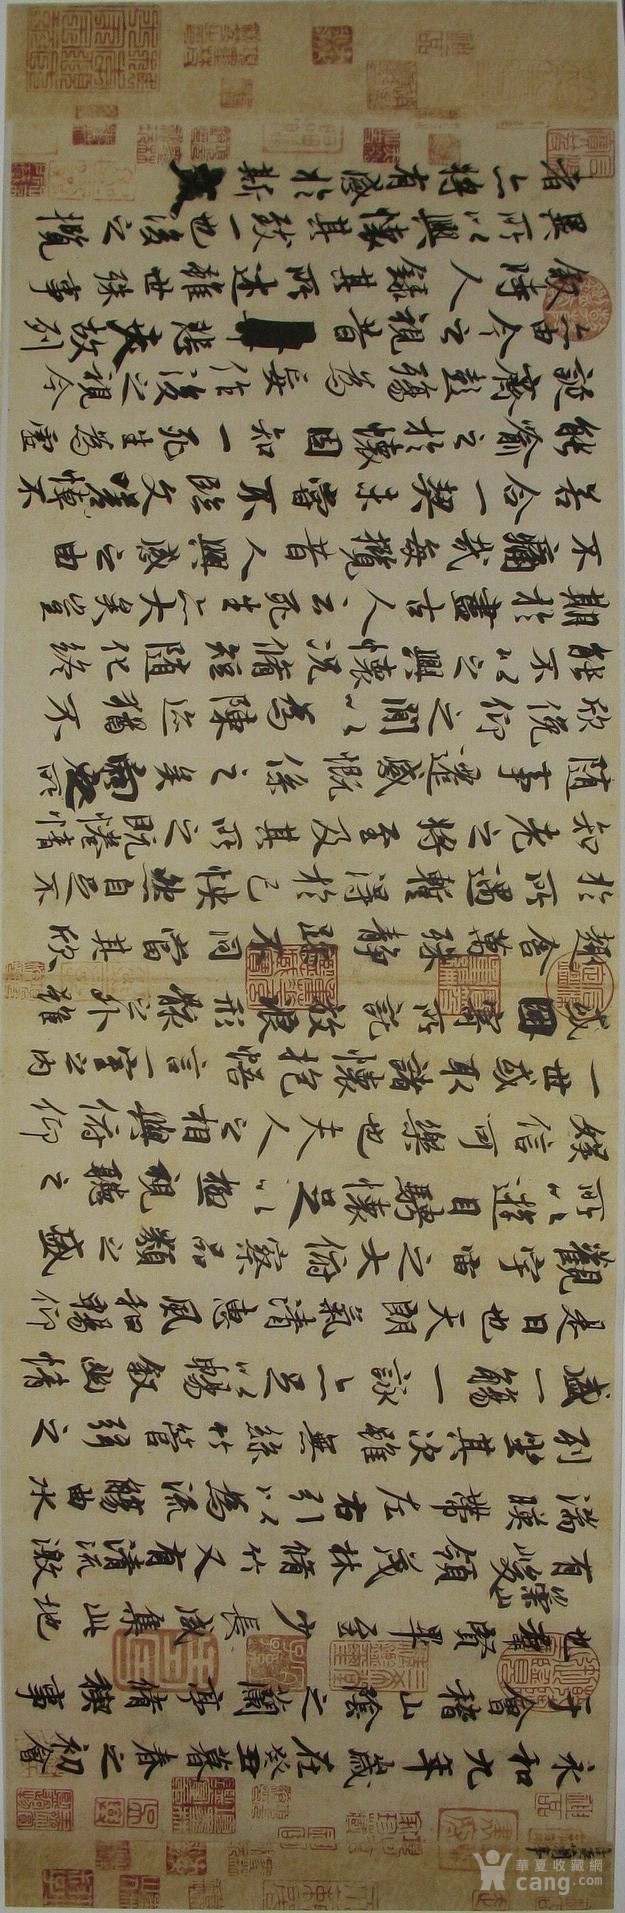 永和九年歲在癸丑暮春之初會
于會稽山陰之蘭亭脩稧事
也群賢畢至少長咸集此地
有崇山峻領茂林脩竹又有清流激
湍暎帶左右引以為流觴曲水
列坐其次雖無絲竹管弦之
盛一觴一詠亦足以暢敘幽情
是日也天朗氣清惠風和暢仰
觀宇宙之大俯察品類之盛
所以遊目騁懷足以極視聽之
娛信可樂也夫人之相與俯仰
一世或取諸懷抱悟言一室之內
或因寄所託放浪形骸之外雖
趣舍萬殊靜躁不同當其欣
於所遇暫得於己怏然自足不
知老之將至及其所之既惓情
隨事遷感慨係之矣向之所
欣俛仰之閒以為陳迹猶不
能不以之興懷況脩短隨化終
期於盡古人云死生亦大矣豈
不痛哉每攬昔人興感之由
若合一契未嘗不臨文嗟悼不
能喻之於懷固知一死生為虛
誕齊彭殤為妄作後之視今
亦由今之視昔悲夫故列
敘時人錄其所述雖世殊事
異所以興懷其致一也後之攬
者亦將有感於斯文
華夏收藏網
cang.com